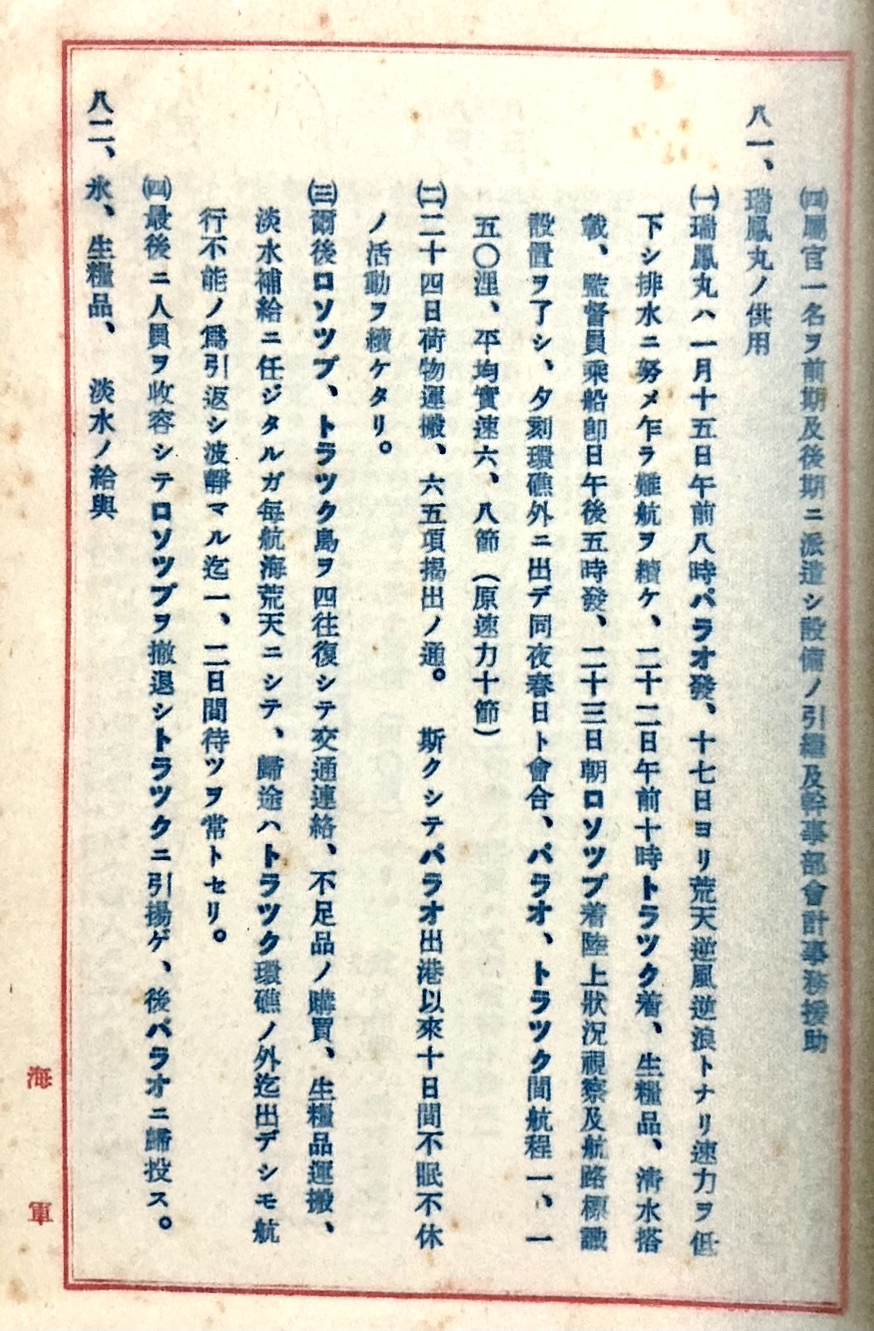 ㈣屬官一名ヲ前期及後期ニ派遣シ設備ノ引繼及幹事部會計事務援助
八一、瑞鳳丸ノ供用
㈠瑞鳳丸ハ一月十五日午前八時パラオ發、十七日ヨリ荒天逆風逆浪トナリ速力ヲ低
下シ排水ニ努メ乍ラ難航ヲ續ケ、二十二日午前十時トラツク着、生糧品、淸水搭
載、監督員乘船卽日午後五時發、二十三日朝ロソツプ着陸上狀況視察及航路標識
設置ヲ了シ、夕刻環礁外ニ出デ同夜春日ト會合、パラオ、トラツク間航程一、一
五〇浬、平均實速六、八節（原速力十節）
㈡二十四日荷物運搬、六五項揭出ノ通。　斯クシテパラオ出港以來十日間不眠不休
ノ活動ヲ續ケタリ。
㈢爾後ロソツプ、トラツク島ヲ四往復シテ交通連絡、不足品ノ購買、生糧品運搬、
淡水補給ニ任ジタルガ每航海荒天ニシテ、歸途ハトラツク環礁ノ外迄出デシモ航
行不能ノ爲引返シ波靜マル迄一、二日間待ツヲ常トセリ。
㈣最後ニ人員ヲ收容シテロソツプヲ撤退シトラツクニ引揚ゲ、後パラオニ歸投ス。
八二、氷、生糧品、　淡水ノ給與
海軍